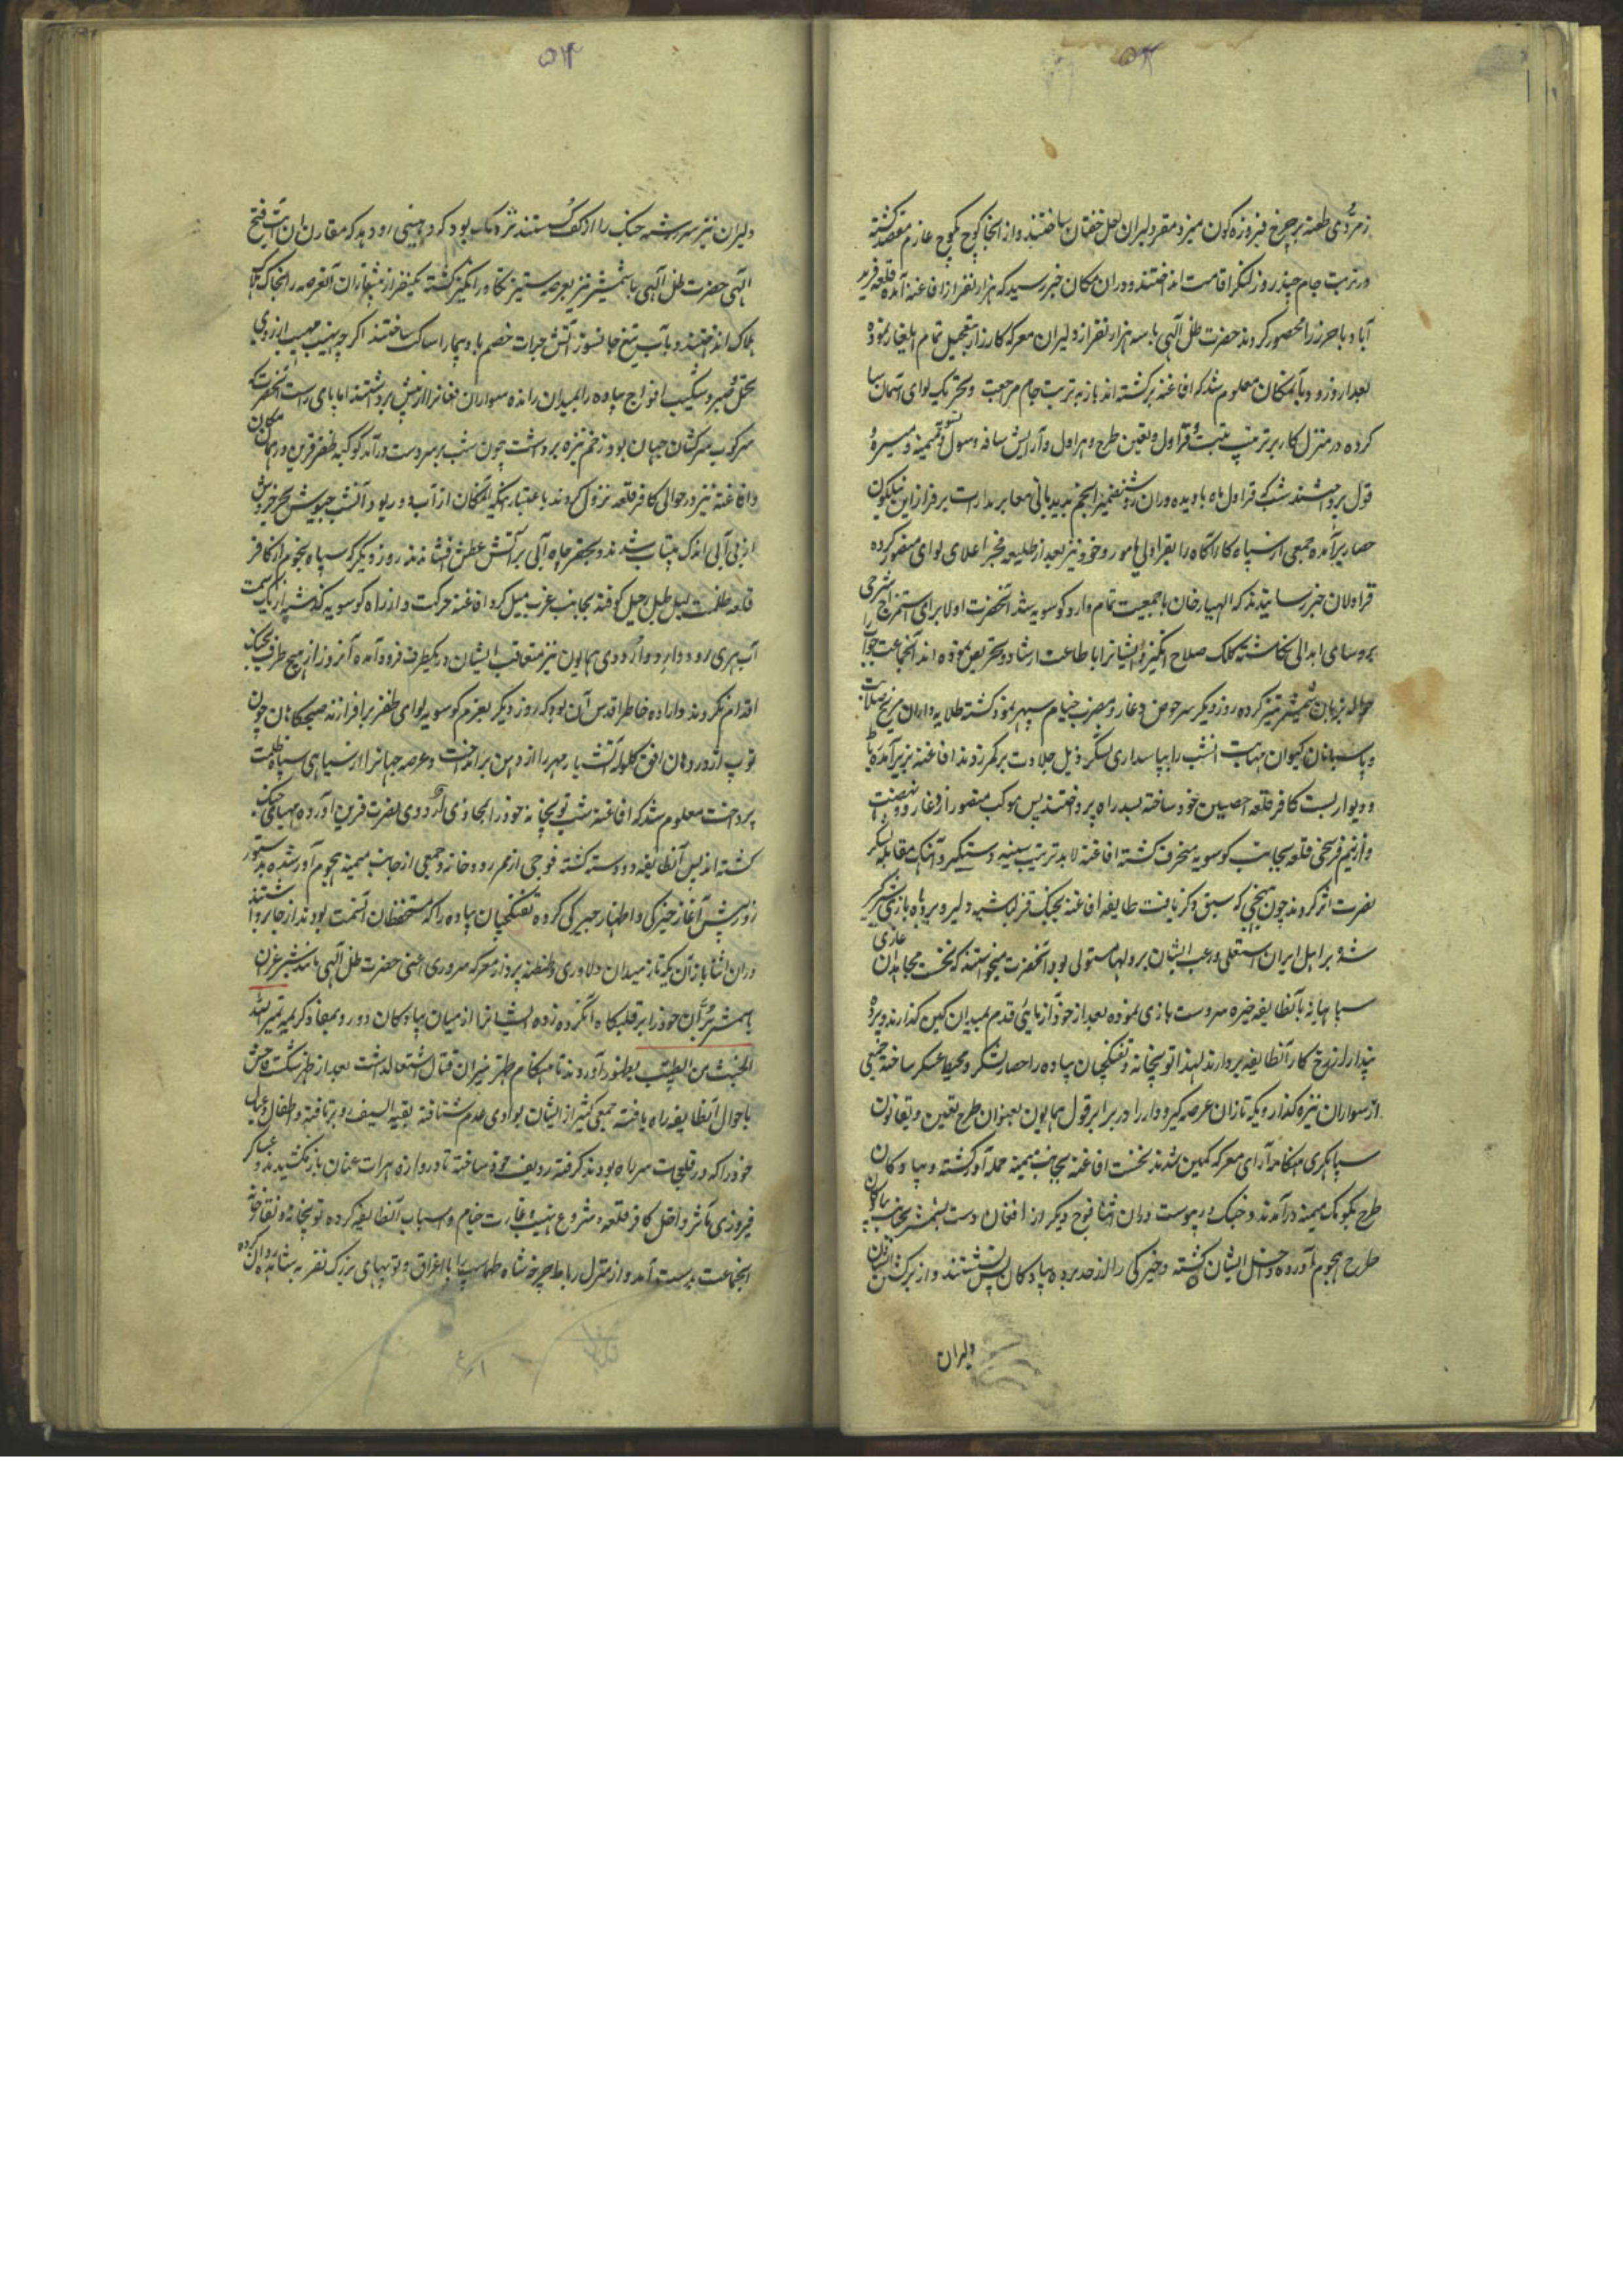 ۵۳
زمردی طعنه بر چرخ فیروزه کون میزد مقر دلیران لعل خفتان ساختند و از انجا کوچ بکوچ عازم مقصد کشته
در تربت جام چند روز لنکر اقامت انداختند و دران مکان خبر رسید که هزار نفر از افاغنه آمده قلعه فرید
آباد باخرز را محصور کردند حضرت ظل آلهی با سه هزار نفر از دلیران معرکه کارزار بتعجیل تمام ایلغار نموده
بعد از ورود بآنمکان معلوم شد که افاغنه برکشته اند باز به تربت جام مراجعت و تحریک لوای آسمان سا
کرده در منزل کاریز ترتیب قراول و تعین طرح و هراول و آرایش ساقه و سول و تسویه میمنه و میسره
قول پرداختند شب که قراول ماه با دیده وران روشنضمیر انجم بدیدبانی معابر مدارات بر فراز این نیلکون
حصار برآمده جمعی از سپاه کارآکاه را بقراولی مامور و خود نیز بعد از طلیعه فجر اعلای لوای منصور کرده
قراولان خبر رسانیدند که الهیار خان با جمعیت تمام وارد کوسویه شد آنحضرت اولا برای استمزاج شرحی
بروسای ابدالی نکاشته کلک صلاح انکیز و ایشانرا باطاعت ارشاد و تحریص نموده اند آنجماعت جواب را
حواله بزبان شمشیر تیز کرده روز دیکر سر حوض دغارو مضرب خیام سپهر نمود کشته طلایه داران مریخ صلابت
و پاسبانان کیوان مهابت انشب را بپاسداری لشکر ذیل جلادت بر کمر زدند افاغنه نیز برآمده باغات
و دیوار بست کافر قلعه را حصین خود ساخته بسد راه پرداختند پس موکب منصور از دغارو نهضت
و از نیم فرسخی قلعه بجانب کوسویه منحرف کشته افاغنه لابد ترتیب سیبه و سنکر و آهنک مقابله لشکر
نصرت اثر کردند چون بنهجی که سبق ذکر یافت طایفه افاغنه بجنک قزلباشیه دلیر و بروباه بازی شیرکیر
شده بر اهل ایران مستعلی و رعب ایشان بر دلها مستولی بود آنحضرت میخواستند که نخست مجاهدان غازی
سپاهیانه با آنطایفه خیره سر دست بازی نموده بعد از خودآزمائی قدم بمیدان کین کذارند و پرده
پندار از رخ کار آنطایفه بردارند لهذا توپخانه و تفنکچیان پیاده را حصار لشکر و محیط عسکر ساخته جمعی
از سواران نیزه کذار و یکه تازان عرصه کیر و دار را در برابر قول همایون بعنوان طرح تعیین و بقانون
سپاهکری هنکامه آرای معرکه کمین شدند نخست افاغنه بجانب میمنه حمله آور کشته و پیادکان
طرح بکومک میمنه درآمدند و جنک در پیوست دران اثنا فوج دیکر از افغان دست بشمشیر بجانب پیادکان
طرح هجوم آورده داخل ایشان کشته و خیرکی را از حد برده پیادکان پس نشستند و از برکشتن ایشان
دلیران
۵۴
دلیران نیز سر رشته جنک را از کف کسستند نزدیک بود که وهنی رو دهد که مقارن ان بتأیید فتح
آلهی حضرت ظل آلهی با شمشیر تیز بعرصه ستیز تکاور انکیز کشته یکنفر از پیشتازان آنعرصه را بخاک
هلاک انداختند و بآب تیغ جانسوز آتش جرأت خصم بادپیما را ساکت ساختند اکرچه نهیب مهیب از روی
تحمل و صبر و شکیب افواج پیاده را بمیدان رانده سواران افغانرا از پیش برداشتند اما پای راست آنحضرت که
سرکوب سرکشان جهان بود زخم نیزه برداشت چون شب بر سر دست درآمد کوکبه ظفر قرین در همان مکان
و افاغنه نیز در حوالی کافر قلعه نزول کردند باعتبار اینکه آنمکان از آب دور بود آنشب جیوش بحر خروش
از بی آبی اندک بیتاب شدند و بحفر چاه آبی بر آتش عطش فشاندند روز دیکر که سپاه نجوم از کافر
قلعه ظلمت لیل طبل رحیل کوفته بجانب غرب میل کرد افاغنه حرکت و از راه کوسویه کذشته از یک سمت
آب هری رود وارد و اردوی همایون نیز متعاقب ایشان در یکطرف فرود آمده آنروز از هیچ طرف بجنک
اقدام نکردند و اراده خاطر اقدس آن بود که روز دیکر بعزم کوسویه لوای ظفر برافرازند صبحکاهان چون
توپ اژدر دهان افق کلوله آتشبار مهر را از دهن برانداخت و عرصه جهانرا از سیاهی سپاه ظلمت
پرداخت معلوم شد که افاغنه شب توپخانه خود را بمحاذی اردوی نصرت قرین آورده مهیای جنک
کشته اند پس آنطایفه دو دسته کشته فوجی از ممر رودخانه و جمعی از جانب میمنه هجوم آور شده بدستور
روز پیش آغاز خیرکی و اظهار چیرکی کرده تفنکچیان پیاده را که مستحفظان آنسمت بودند از جا برداشتند
دران اثنا باز آن یکه تاز میدان دلاوری و طنطنه پرداز معرکه سروری اعنی حضرت ظل آلهی مانند شیر غران
با شمشیر بران خود را بر قلبکاه آنکروه زده ایشانرا از میان پیادکان دور و بمفاد کریمه لیمیز الله
الخبیث من الطیب بظهور آوردند تا هنکام ظهر نیران قتال اشتعال داشت بعد از ظهر شکست فاحش
باحوال آنطایفه راه یافته جمعی کثیر از ایشان بوادی عدم شتافته بقیة السیف رو برتافته و اطفال و عیال
خود را که در قلعجات سر راه بودند کرفته ردیف خود ساخته تا دروازه هرات عنان باز نکشیدند و عساکر
فیروزی مآثر داخل کافر قلعه و شروع بنهب و غارت خیام و اسباب آنطایفه کرده توپخانه و نقارخانه
انجماعت بدست آمد و از منزل رباط چرخه شاه طهماسب را با اغراق و توپهای بزرک نفر بمشایده روان کرده